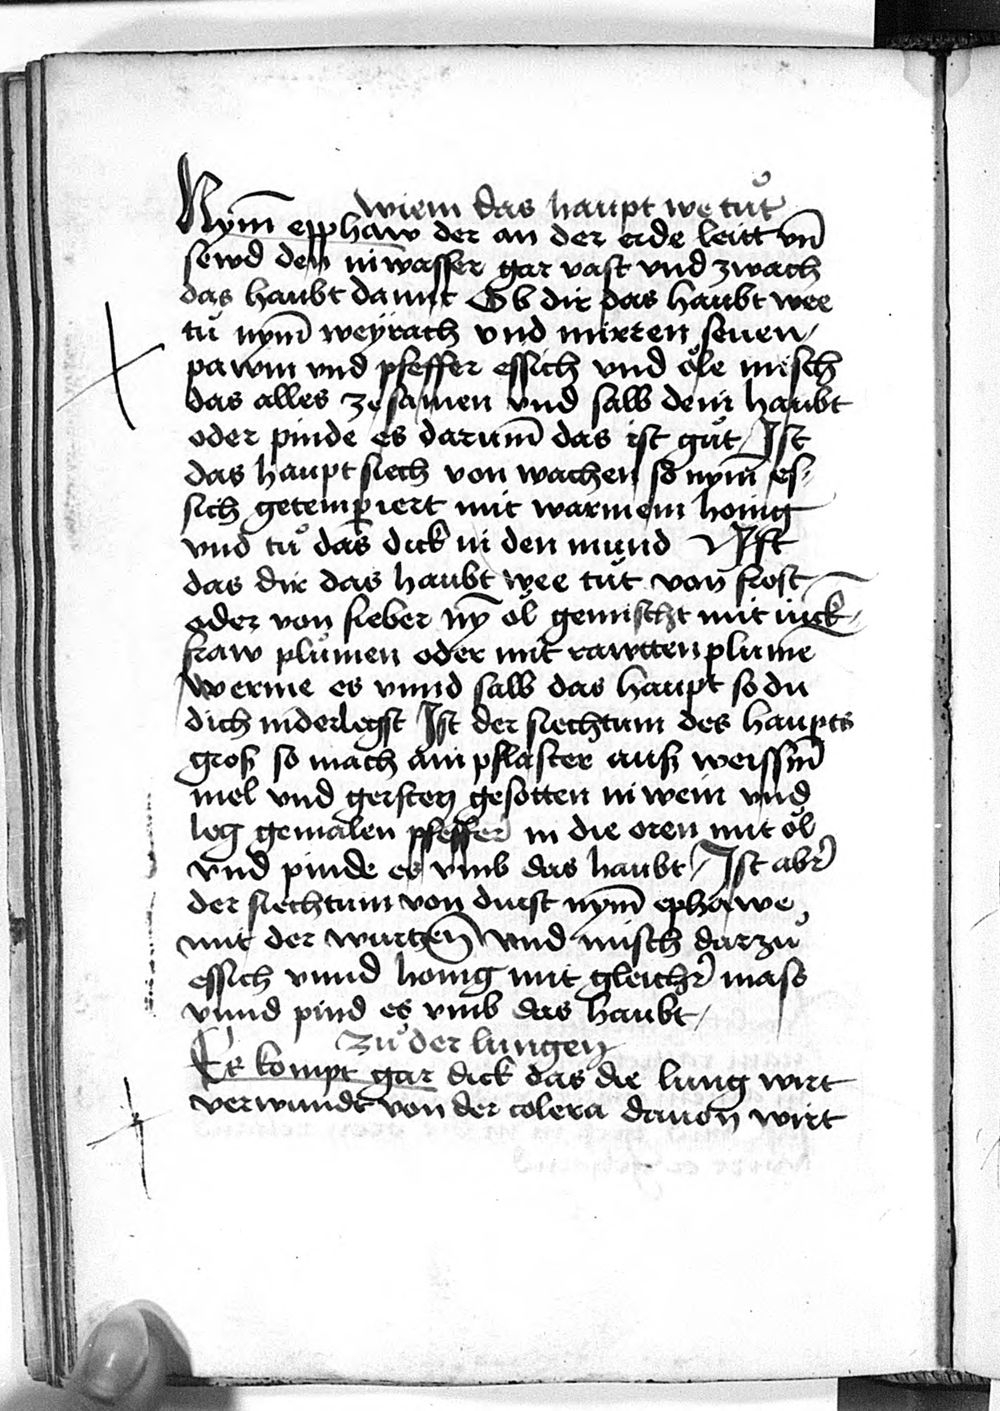 wiem das haupt we tuͦt
Nym̄ epphaw der an der erde leitt vn̄
sewd den in wasser gar vast vnd zwach
das haubt damit Ob dir das haubt wee
tuͦ nym̄ weyrach vnd mirren seuen⸗
pawm vnd pfeffer essich vnd oͤle misch
das alles zesamen vnd salb dein haubt
oder pinde es darum̄ das ist guͦt / Ist
das haupt siech von wachen so nym̄ es⸗
sich getemperiert mit warmem honig
vnd tuͦ das dick in den mund Ist
das dir das haubt wee tuͦt von frost
oder von fieber nȳ oͤl gemischt mit iuck⸗
fraw pluͦmen oder mit rawtten plume
werme es vnnd salb das haupt so du
dich niderlegst Ist der siechtum des haupts
groß so mach ain pflaster auß weissm̄
mel vnd gersten gesotten in wein vnd
leg gemalen pfeffer in die oren mit oͤl
vnd pinde es vmb das haubt / Ist abr̄
der siechtum von durst nym̄ ephawe
mit der wurtzen̄ vnd misch darzuͦ
essich vnnd honig mit gleichr̄ mass
vnnd pind es vmb das haubt /
Zuͦ der lungen
Es kompt gar dick das die lung wirt
verwundt von der colera dauon̄ wirt